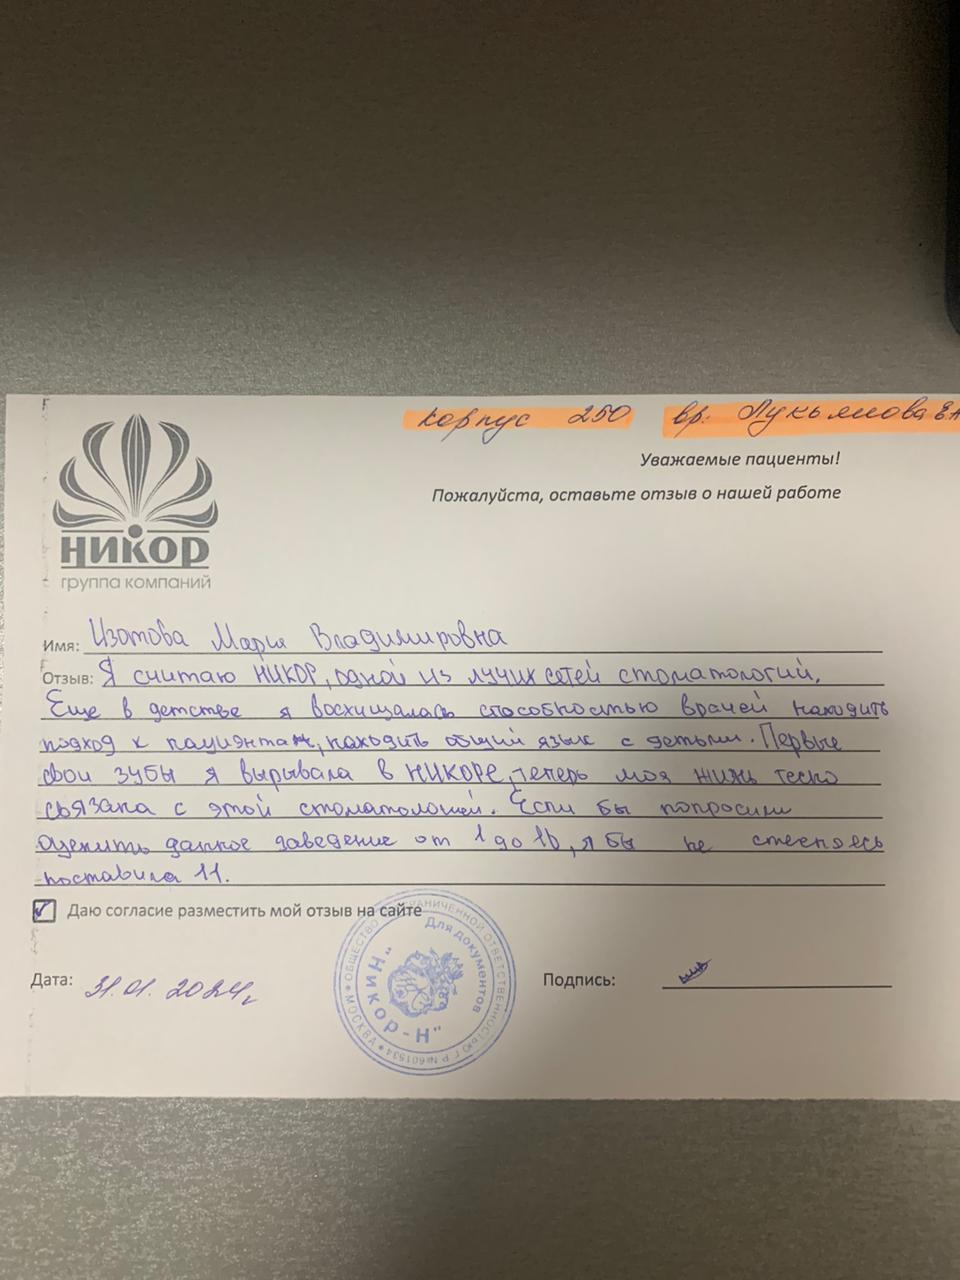 корпус 250 вр. Лукьянова ЕА
Уважаемые пациенты!
Пожалуйста, оставьте отзыв о нашей работе
НИКОР
группа компаний
Имя: Изотова Мария Владимировна
Отзыв: Я считаю НИКОР, одной из лучих сетей стоматологий.
Еще в детстве я восхищалась способностью врачей находить
подход к пациэнтам, находить общий язык с детьми. Первые
свои зубы я вырывала в НИКОРЕ, теперь моя жизь тесно
связана с этой стоматологией. Если бы попросили
оценить данное заведение от 1 до 10, я бы не стесняясь
поставила 11.
Даю согласие разместить мой отзыв на сайте
Дата: 31.01.2024г
Подпись:
ОБЩЕСТВО С ОГРАНИЧЕННОЙ ОТВЕТСТВЕННОСТЬЮ Г Р №601534 МОСКВА
Для документов
"Никор-Н"